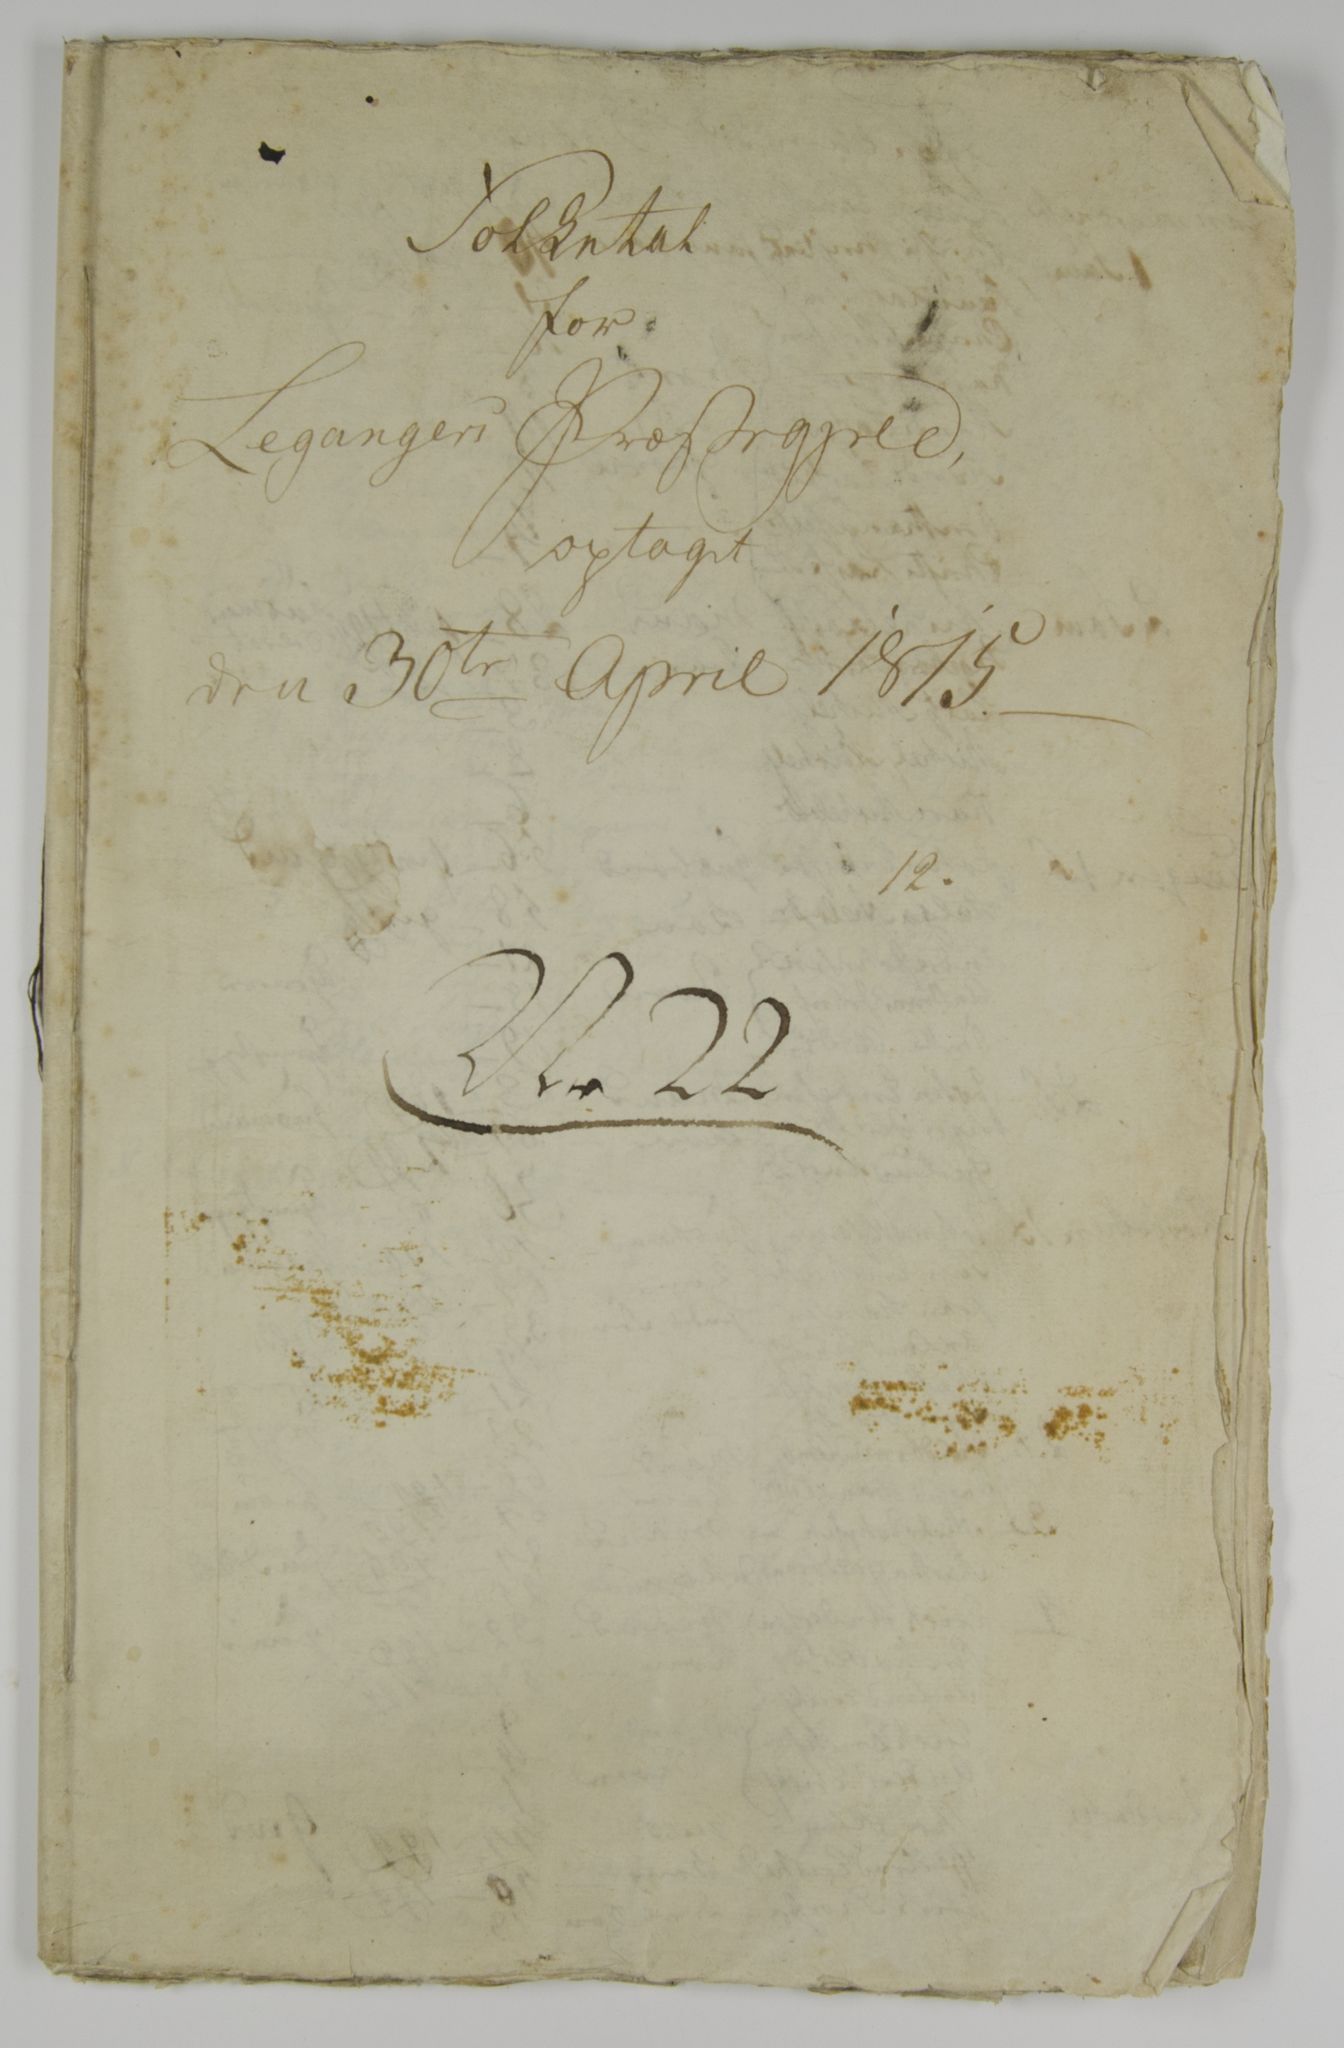 Folketal
for
Legangers Præstegjeld,
optaget
den 30te April 1815.
12.
No 22